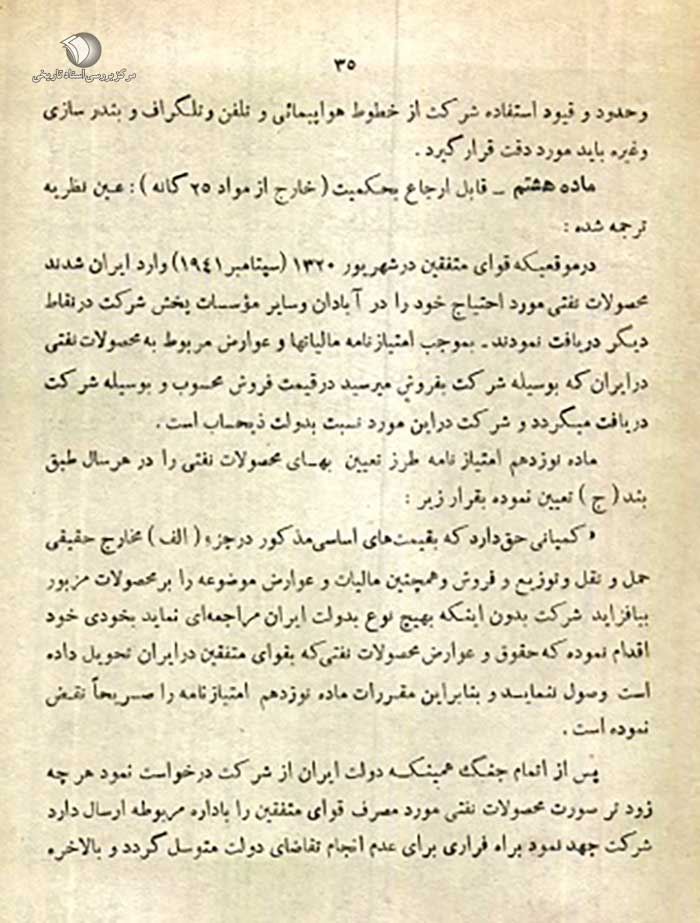 مرکز بررسی اسناد تاریخی
۳۵
وحدود و قیود استفاده شرکت از خطوط هواپیمائی و تلفن وتلگراف و بندر سازی
وغیره باید مورد دقت قرار گیرد .
ماده هشتم ــ قابل ارجاع بحکمیت ( خارج از مواد ۲۵ گانه ) : عین نظریه
ترجمه شده :
درموقعیکه قوای متفقین درشهریور ۱۳۲۰ (سپتامبر۱۹۴۱) وارد ایران شدند
محصولات نفتی مورد احتیاج خود را در آبادان وسایر مؤسسات پخش شرکت درنقاط
دیگر دریافت نمودند ـ بموجب امتیازنامه مالیاتها و عوارض مربوط به محصولات نفتی
درایران که بوسیله شرکت بفروش میرسید درقیمت فروش محسوب و بوسیله شرکت
دریافت میگردد و شرکت دراین مورد نسبت بدولت ذیحساب است .
ماده نوزدهم امتیاز نامه طرز تعیین بهای محصولات نفتی را در هرسال طبق
بند ( ج ) تعیین نموده بقرار زیر :
« کمپانی حق‌دارد که بقیمت‌های اساسی‌مذکور درجزء ( الف ) مخارج حقیقی
حمل و نقل و توزیع و فروش وهمچنین مالیات و عوارض موضوعه را برمحصولات مزبور
بیافزاید شرکت بدون اینکه بهیچ نوع بدولت ایران مراجعه‌ای نماید بخودی خود
اقدام نموده که حقوق و عوارض محصولات نفتی‌که بقوای متفقین درایران تحویل داده
است وصول ننمایـد و بنابراین مقـررات ماده نوزدهم امتیازنامه را صـریحاً نقض
نموده است .
پس از اتمام جنگ همینکـه دولت ایران از شرکت درخواست نمود هر چه
زود تر صورت محصولات نفتی مورد مصرف قوای متفقین را باداره مربوطه ارسال دارد
شرکت جهد نمود براه فراری برای عدم انجام تقاضای دولت متوسل گردد و بالاخره